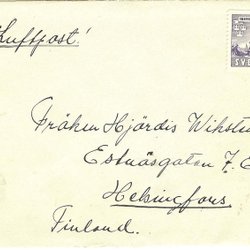 Luftpost!
SVE
Fröken Hjördis Wikstr
Estnäsgatan 7. E
Helsingfors.
Finland.